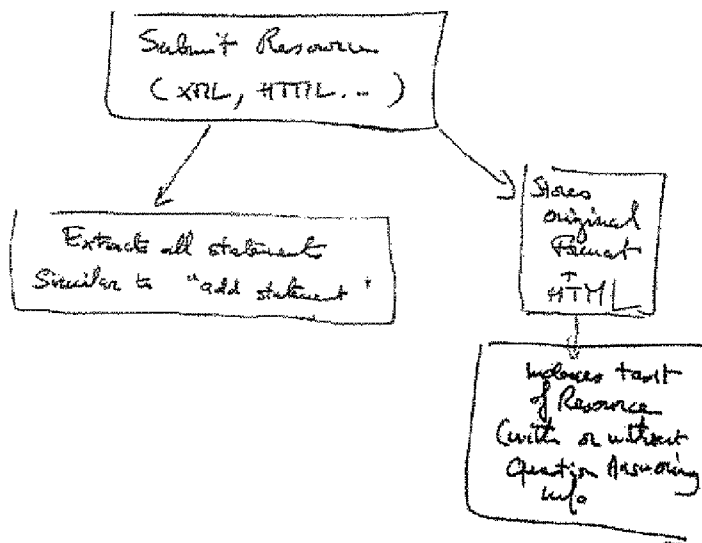 Submit Resource
(XML, HTML...)
Extracts all statement
Similar to "add statement"
Stores
original
Format
HTML
Indexes text
of Resource
(with or without
Question Answering
info